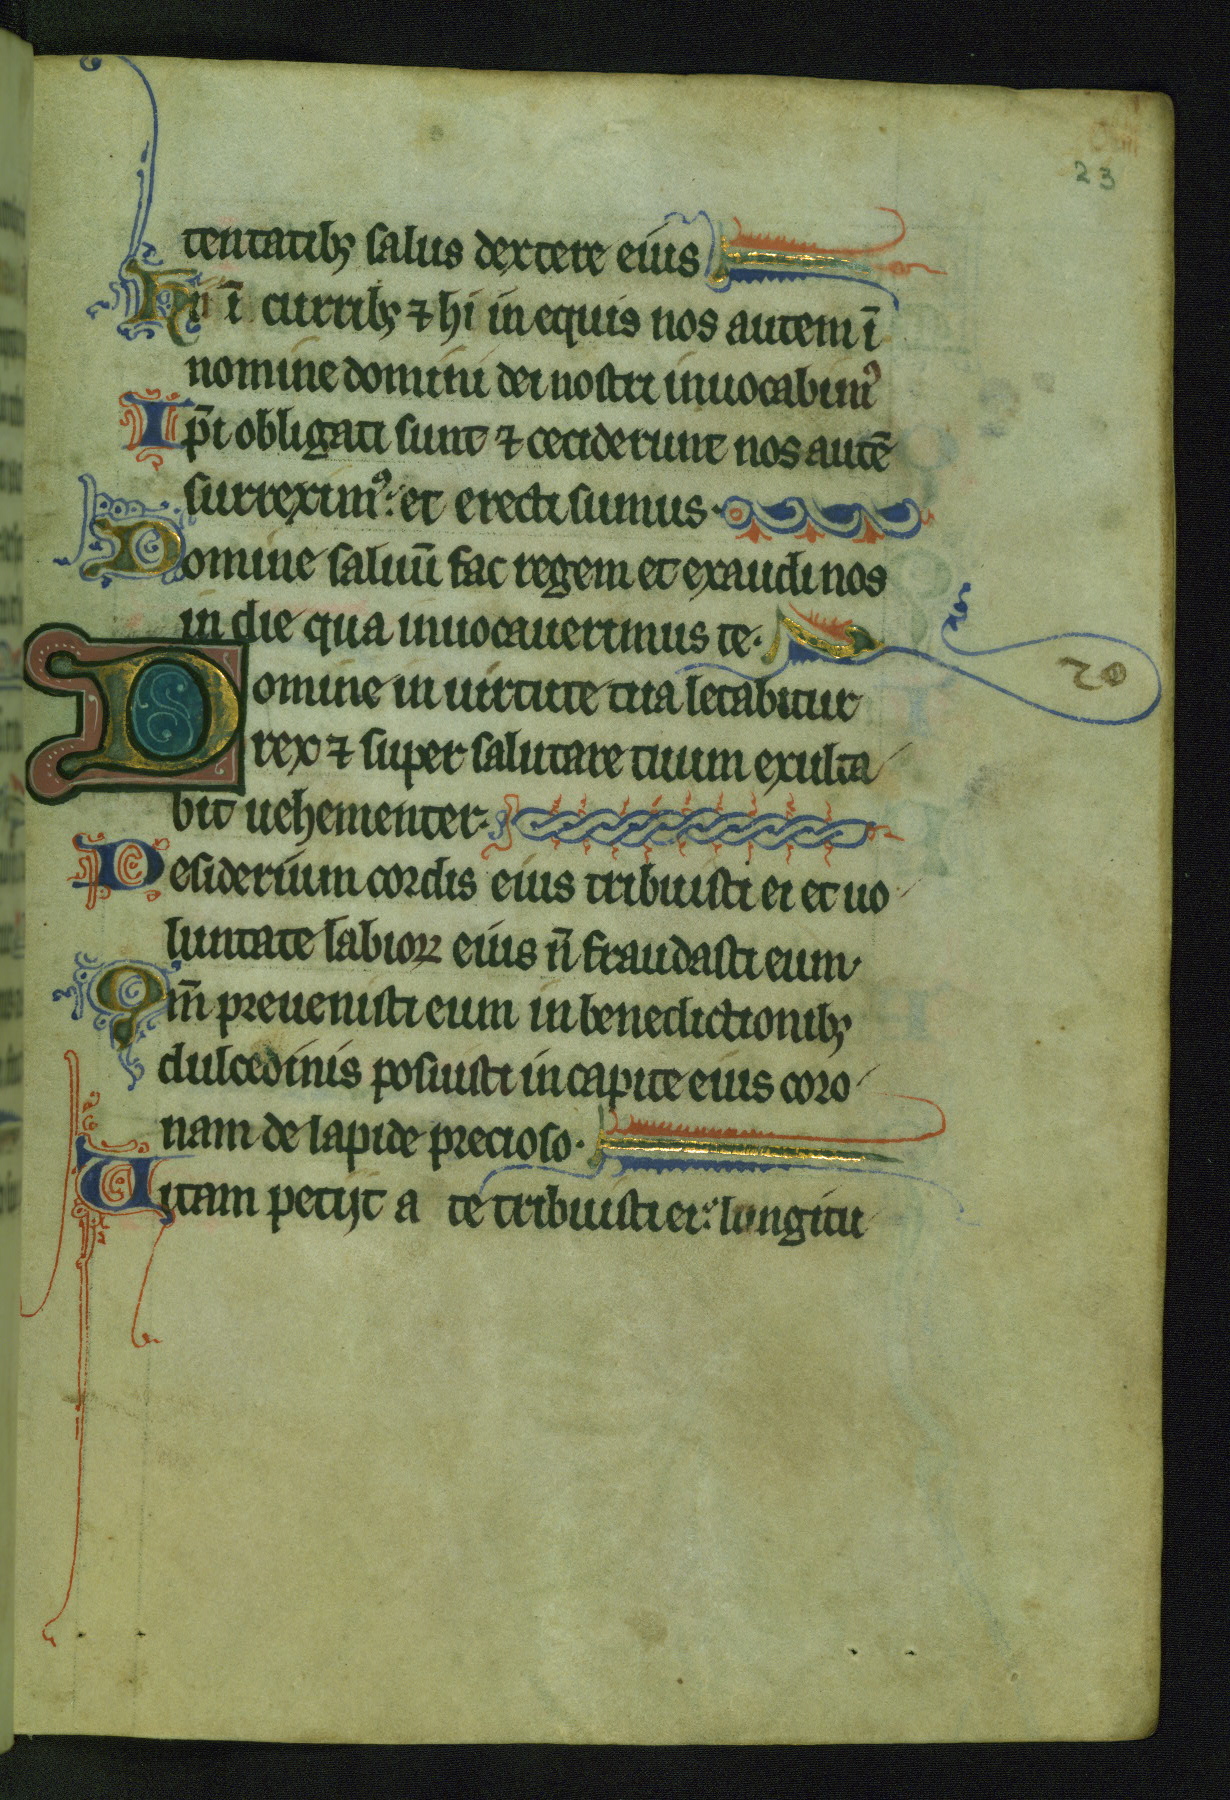 23
tentatibꝫ salus dextere eius
Hii ī curribꝫ ⁊ hi in equis nos autem ī
nomine domini dei nostri inuocabimꝰ
Ip̄i obligati sunt ⁊ ceciderunt nos autē
surreximꝰ: et erecti sumus·
Domine saluū fac regem et exaudi nos
in die qua inuocauerimus te·
20
Domine in uirtute tua letabitur
rex ⁊ super salutare tuum exulta
bit uehementer·
Desiderium cordis eius tribuisti ei et uo
luntate labioꝝ eius n̄ fraudasti eum·
Qm̄ preuenisti eum in benedictionibꝫ
dulcedinis posuisti in capite eius coro
nam de lapide precioso·
Uitam petijt a te tribuisti ei: longitu